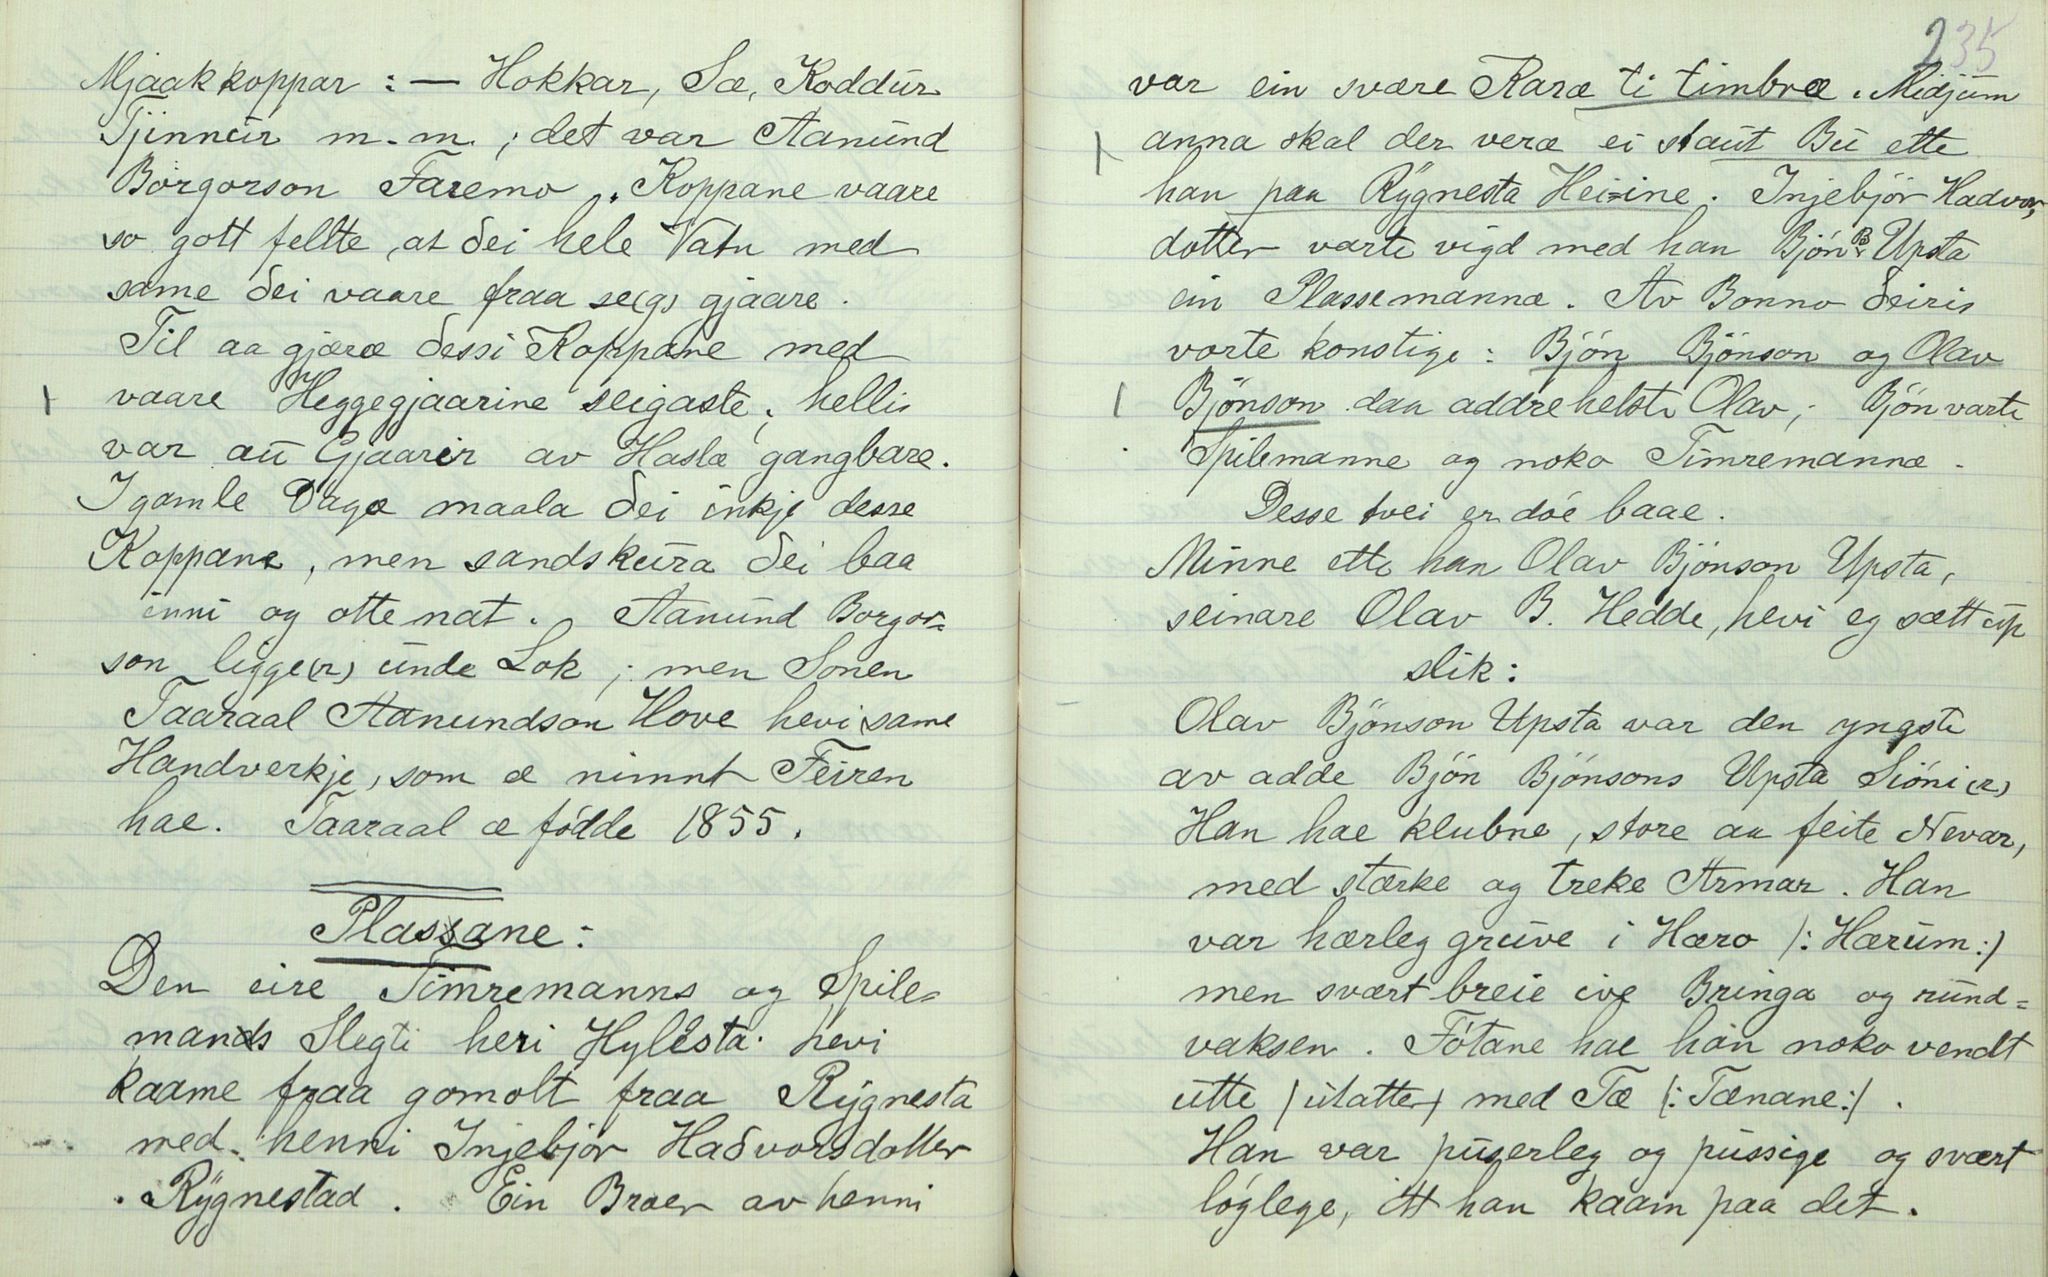 Mjaakkoppar : — Hokkar, Sæ, Koddur
Tjinnur m. m. ; det var Aanund
Borgorson Faremo. Koppane vaare
so gott fellte, at dei hele Vatn med
same dei vaare fraa se(g) gjaare.
Til aa gjæræ dessi Koppane med
vaare Heggegjaarine seigaste; helli
var au Gjaarir av Haslæ gangbare.
I gamle Dagæ maala dei inkje desse
Koppane, men sandskura dei baa
inni og ottenat. Aanund Borgor=
son ligge(r) unde Lok ; men Sonen
Taaraal Aanundson Hove hevi same
Handverkje, som æ nimnt Feiren
hae. Taaraal æ fødde 1855.
Plassane :
Den eire Timremanns og Spile=
mands Slegti heri Hylestad hevi
kaame fraa gomolt fraa Rygnesta
med henni Injebjør Hadvorsdotter
Rygnestad. Ein Broer av henni
235
var ein svære Karæ ti timbræ. Midjum
anna skal der veræ ei staut Bu ette
han paa Rygnesta Hei-ine. Injebjør Hadvors
dotter varte vigd med han Bjøn B. Upsta
ein Plassemannæ. Av Bonno deiris
vorte konstige : Bjøn Bjønson og Olav
Bjønson daa addrehelste Olav; Bjøn varte
Spilemanne og noko Timremannæ.
Desse tvei er døe baae.
Minne ette han Olav Bjønson Upsta,
seinare Olav B. Hedde, hevi eg sætt up
slik :
Olav Bjønson Upsta var den yngste
av adde Bjøn Bjønsons Upsta Siøni(r)
Han hae klubne, store aa feite Nevar,
med stærke og treke Armar. Han
var hærleg gruve i Hæro /: Hærum :/
men svært breie ive Bringa og rund=
vaksen. Føtane hae han noko vendt
utte /utatter/ med Tæ /: Tænane :/ .
Han var puserleg og pussige og svært
løglege, itt han kaam paa det.